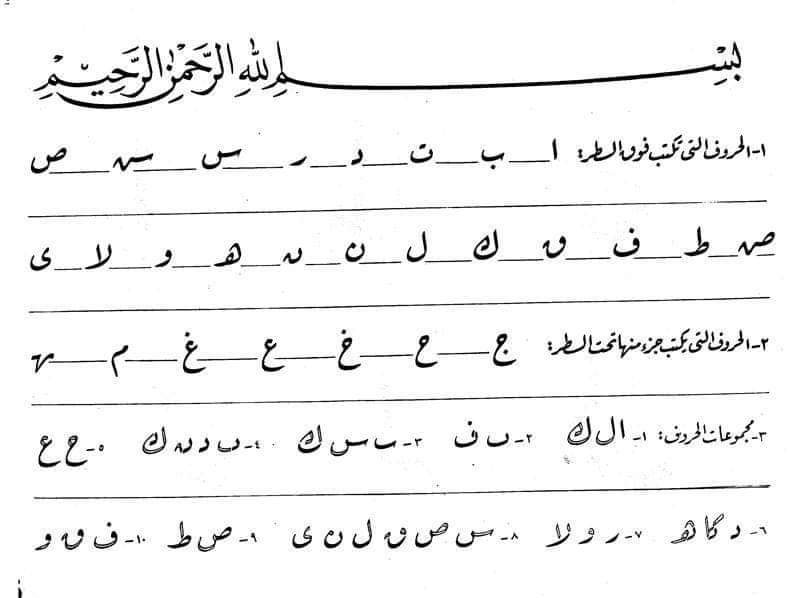 بسم الله الرحمن الرحيم
١- الحروف التي تكتب فوق السطر: ا ب ت د ر س سـ ص
صـ ط ف ق ك ل ن نـ هـ و لا ى
٢- الحروف التي يكتب جزء منها تحت السطر: ج ح خ ع غ م
٣- مجموعات الحروف: ١- ا ل ك ٢- ٮ ف ٣- ٮ س ك ٤- ٮ د ك ٥- ح ع
٦- د كا هـ ٧- ر و لا ٨- س ص ق ل ن ى ٩- ص ط ١٠- ف ق و